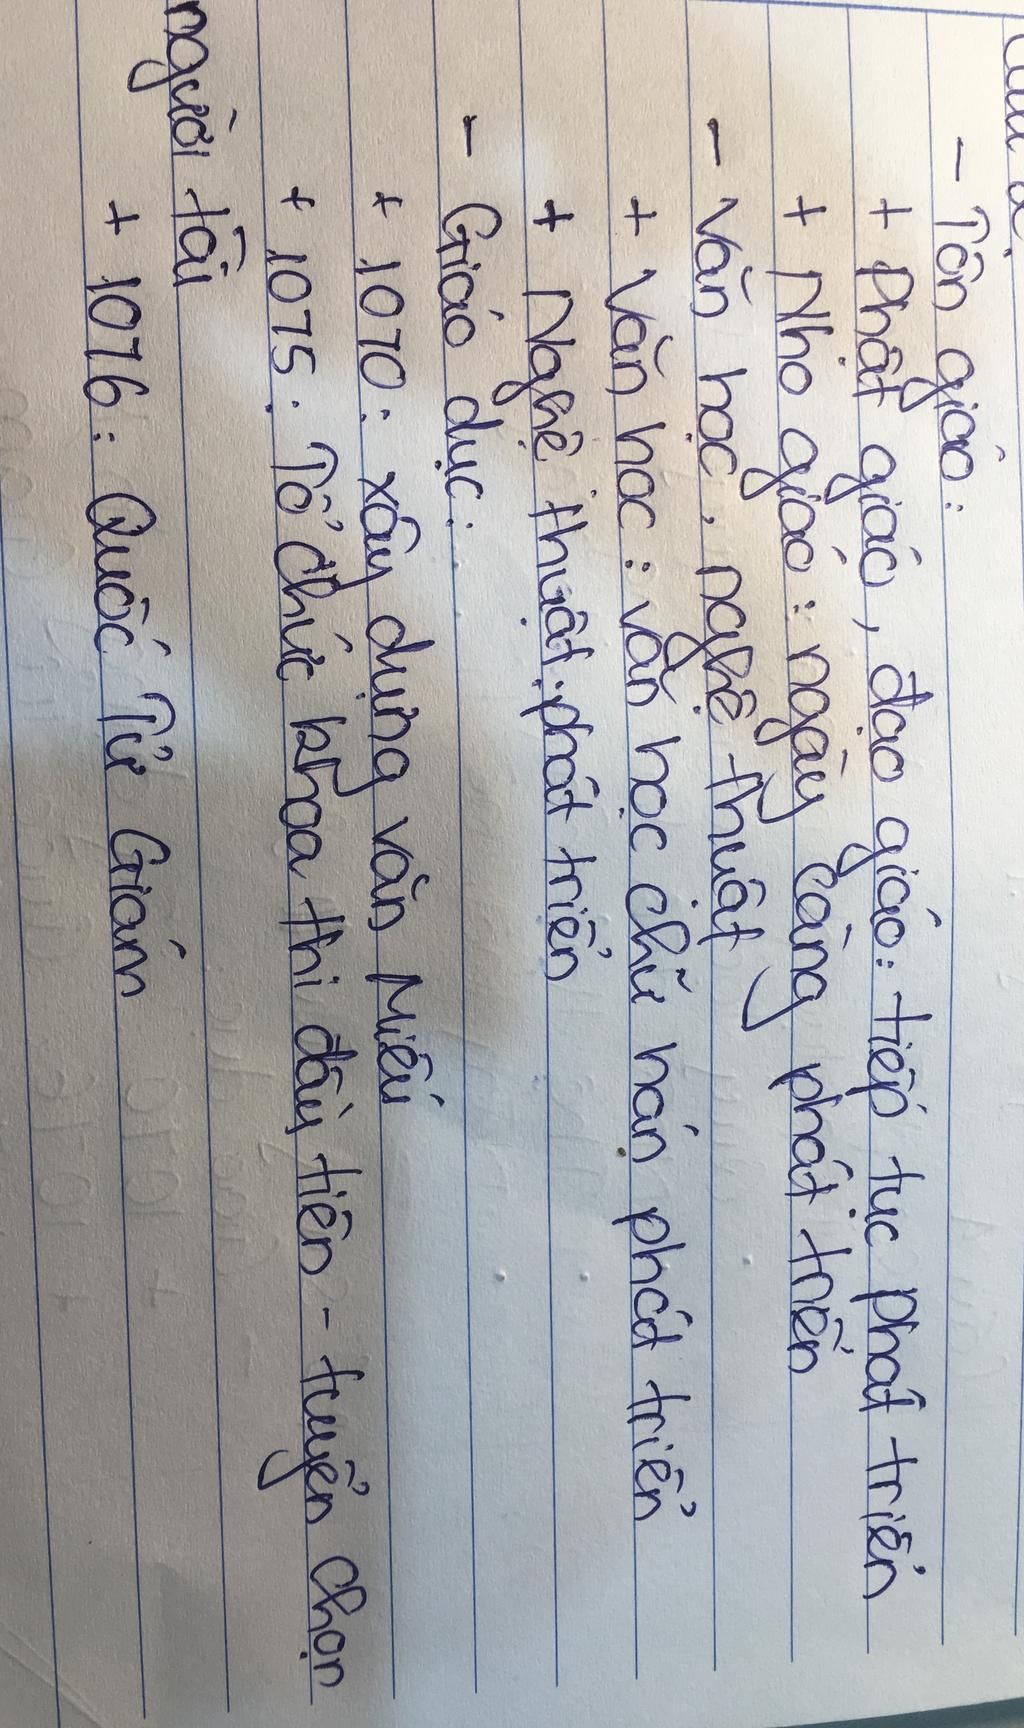 - Tôn giáo:
+ Phật giáo, đạo giáo: tiếp tục phát triển
+ Nho giáo: ngày càng phát triển
- Văn học, nghệ thuật
+ Văn học: văn học chữ hán phát triển
+ Nghệ thuật: phát triển
- Giáo dục:
+ 1070: xây dựng văn Miếu
+ 1075: Tổ chức khoa thi đầu tiên - tuyển chọn
người tài
+ 1076: Quốc Tử Giám